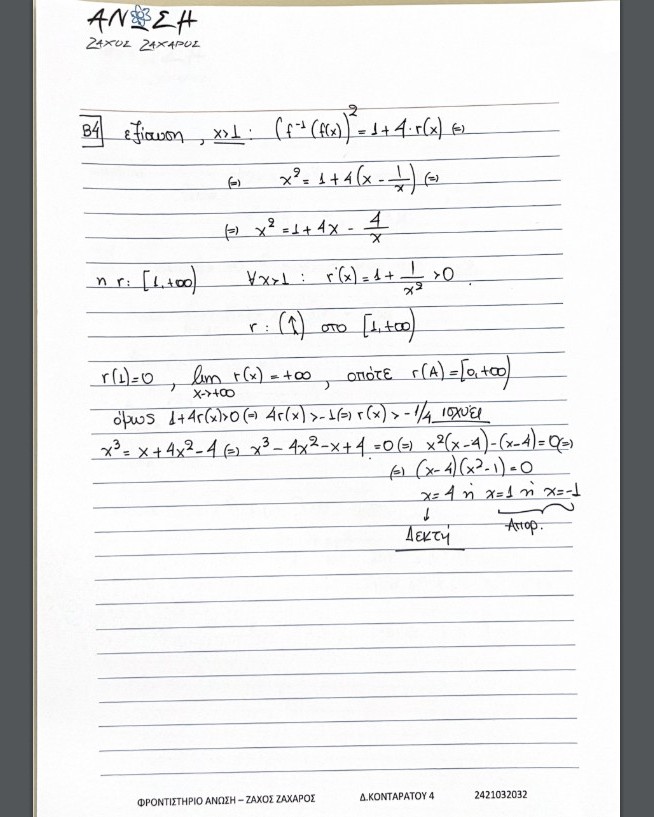 ΑΝΩΣΗ
ΖΑΧΟΣ ΖΑΧΑΡΟΣ
Β4 εξίσωση , x>1 : (f⁻¹(f(x))² = 1+4·r(x) (=)
(=) x² = 1+4(x - 1/x) (=)
(=) x² = 1+4x - 4/x
η r: [1,+∞) ∀x>1 : r'(x) = 1 + 1/x² > 0 .
r : (↑) στο [1,+∞)
r(1)=0 , lim x→+∞ r(x) = +∞ , οπότε r(A) = [0,+∞)
όμως 1+4r(x)>0 (=) 4r(x) > -1 (=) r(x) > -1/4 ισχύει
x³ = x+4x²-4 (=) x³-4x²-x+4 = 0 (=) x²(x-4)-(x-4)=0 (=)
(=) (x-4)(x²-1)=0
x=4 ή x=1 ή x=-1
↓
Δεκτή Απορ.
ΦΡΟΝΤΙΣΤΗΡΙΟ ΑΝΩΣΗ – ΖΑΧΟΣ ΖΑΧΑΡΟΣ Δ.ΚΟΝΤΑΡΑΤΟΥ 4 2421032032